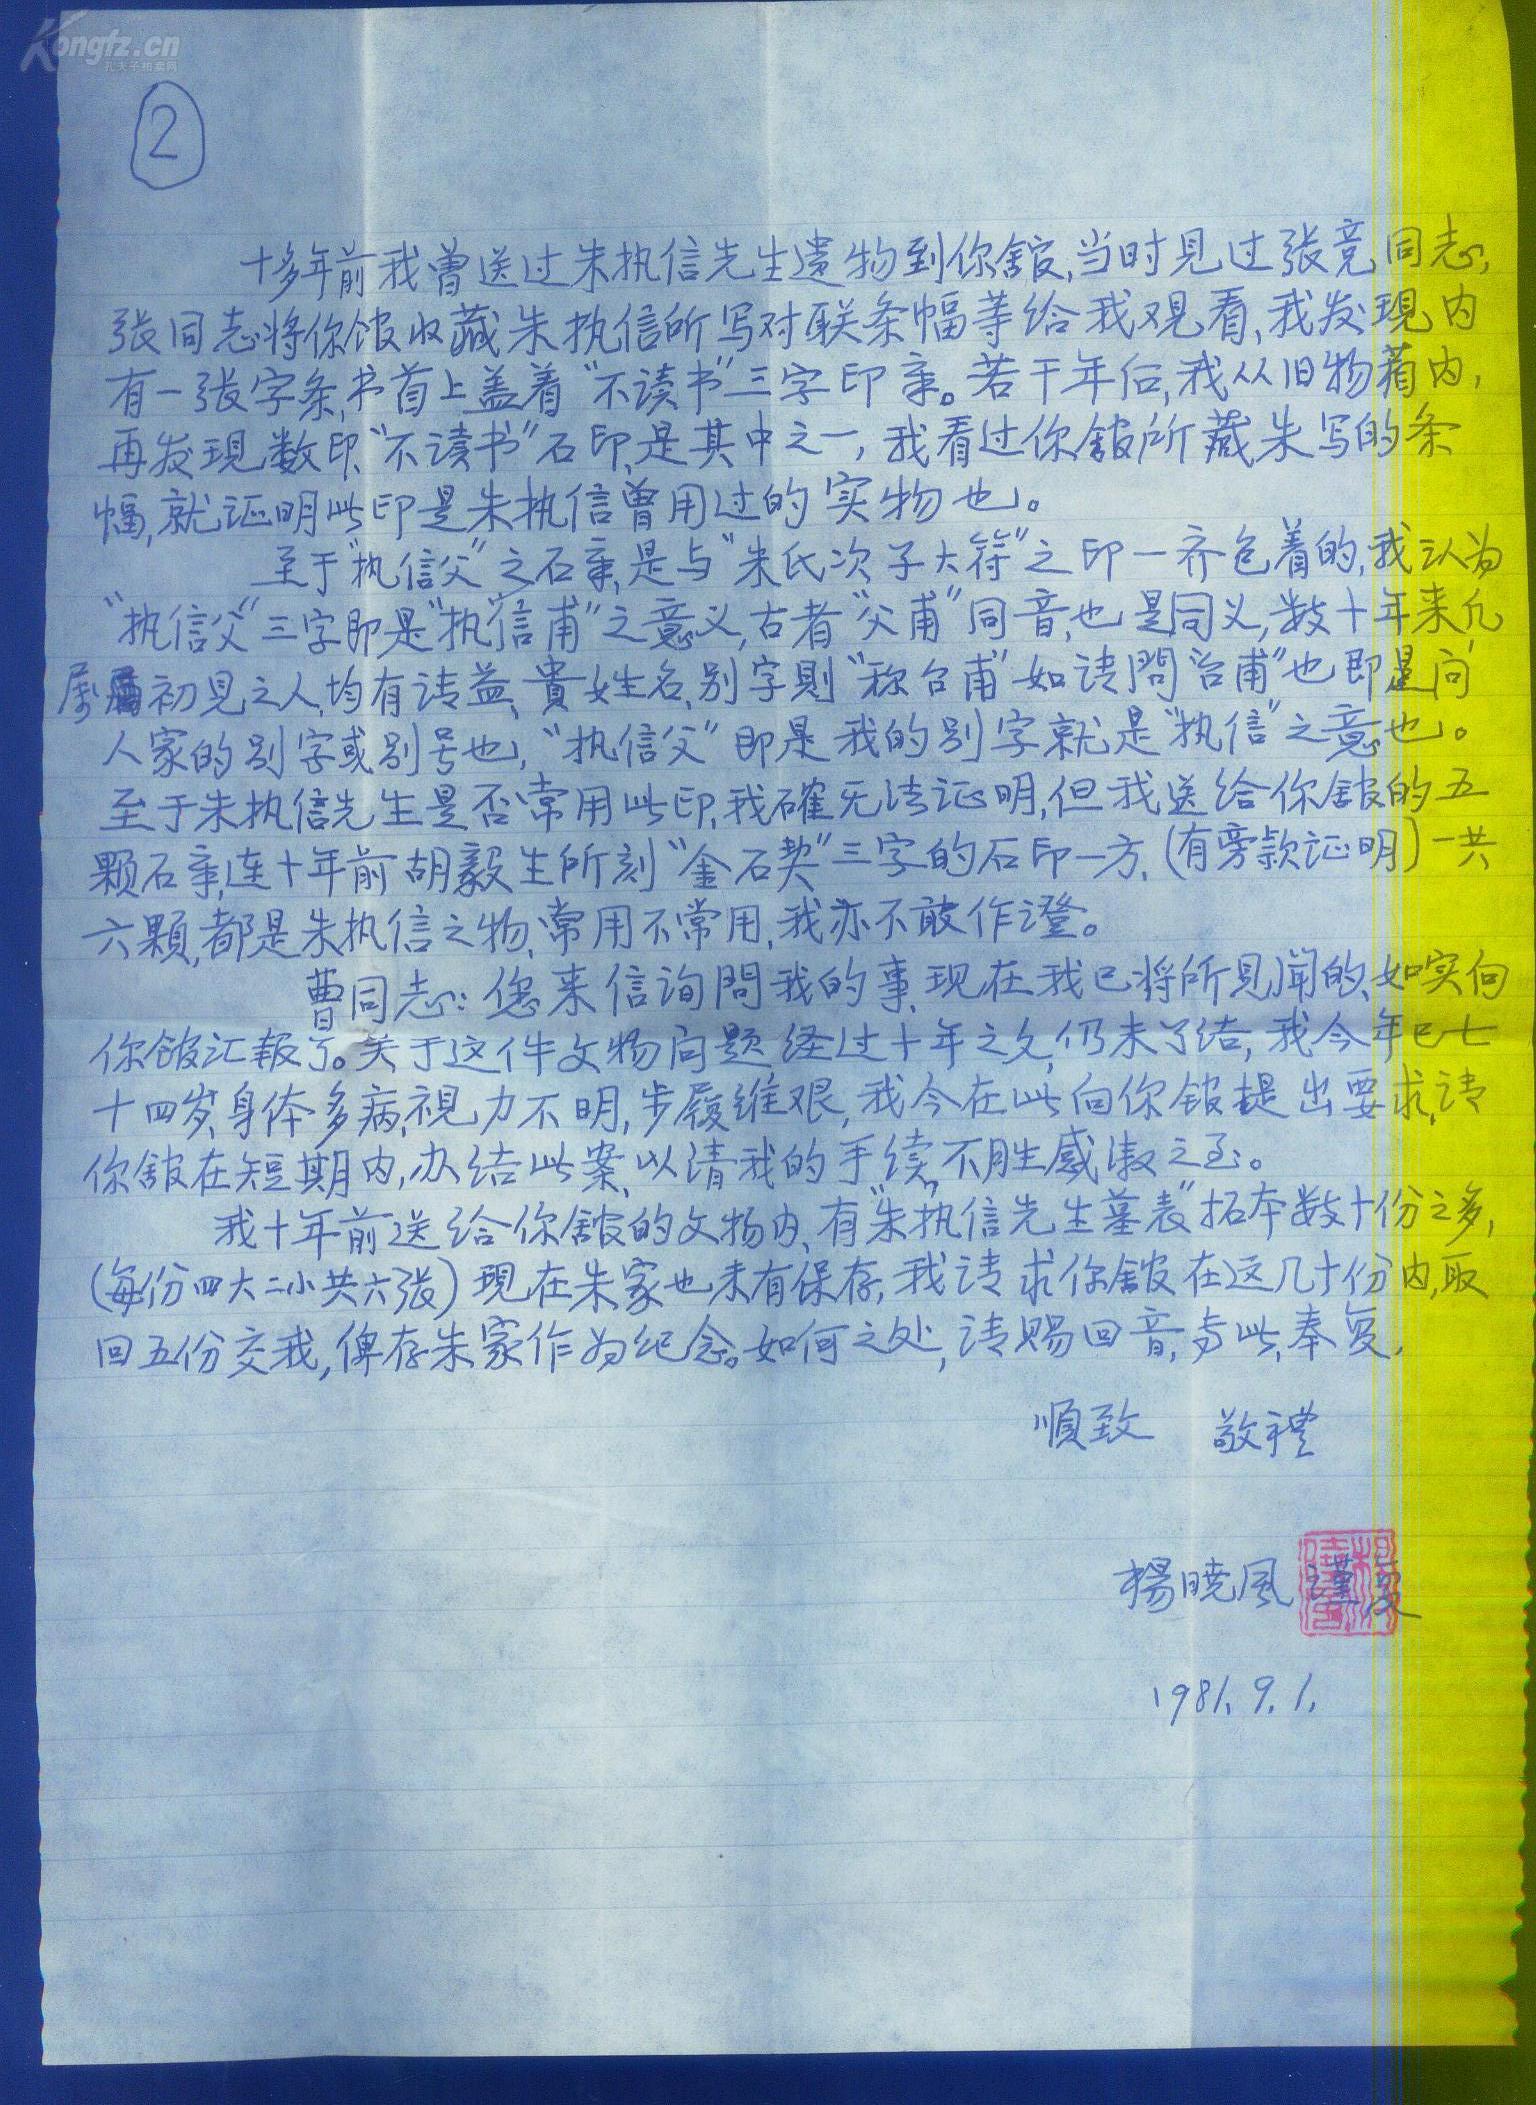 Kongfz.cn
孔夫子拍卖网
2
十多年前我曾送过朱执信先生遗物到你舘,当时见过张竞同志,
张同志将你舘收藏朱执信所写对联条幅等给我观看,我发現内
有一张字条,书首上盖着“不读书”三字印章。若干年后,我从旧物箱内,
再发現数印,“不读书”石印,是其中之一,我看过你舘所藏朱写的条
幅,就证明此印是朱执信曾用过的实物也。
至于“执信父”之石章,是与“朱氏次子大符”之印一齐包着的,我认为
“执信父”三字即是“执信甫”之意义,古者“父甫”同音,也是同义,数十年来凡
属初見之人,均有请益、貴姓名,别字則“称台甫”如请問“台甫”也即是问
人家的别字或别号也,“执信父”即是我的别字就是“执信”之意也。
至于朱执信先生是否常用此印,我確无法证明,但我送给你舘的五
颗石章,连十年前胡毅生所刻“金石契”三字的石印一方,(有旁款证明)一共
六顆,都是朱执信之物,常用不常用,我亦不敢作證。
曹同志:您来信询問我的事,现在我已将所見闻的,如实向
你舘汇報了。关于这件文物问题,经过十年之久,仍未了结,我今年已七
十四岁,身体多病,視力不明,步履维艰,我今在此向你舘提出要求,请
你舘在短期内,办结此案,以清我的手续,不胜感激之至。
我十年前送给你舘的文物内,有“朱执信先生墓表”拓本数十份之多,
(每份四大二小共六张)現在朱家也未有保存,我请求你舘在这几十份内,取
回五份交我,俾存朱家作为纪念。如何之处,请赐回音,专此,奉复,
順致 敬禮
楊曉風 谨复
1981.9.1.